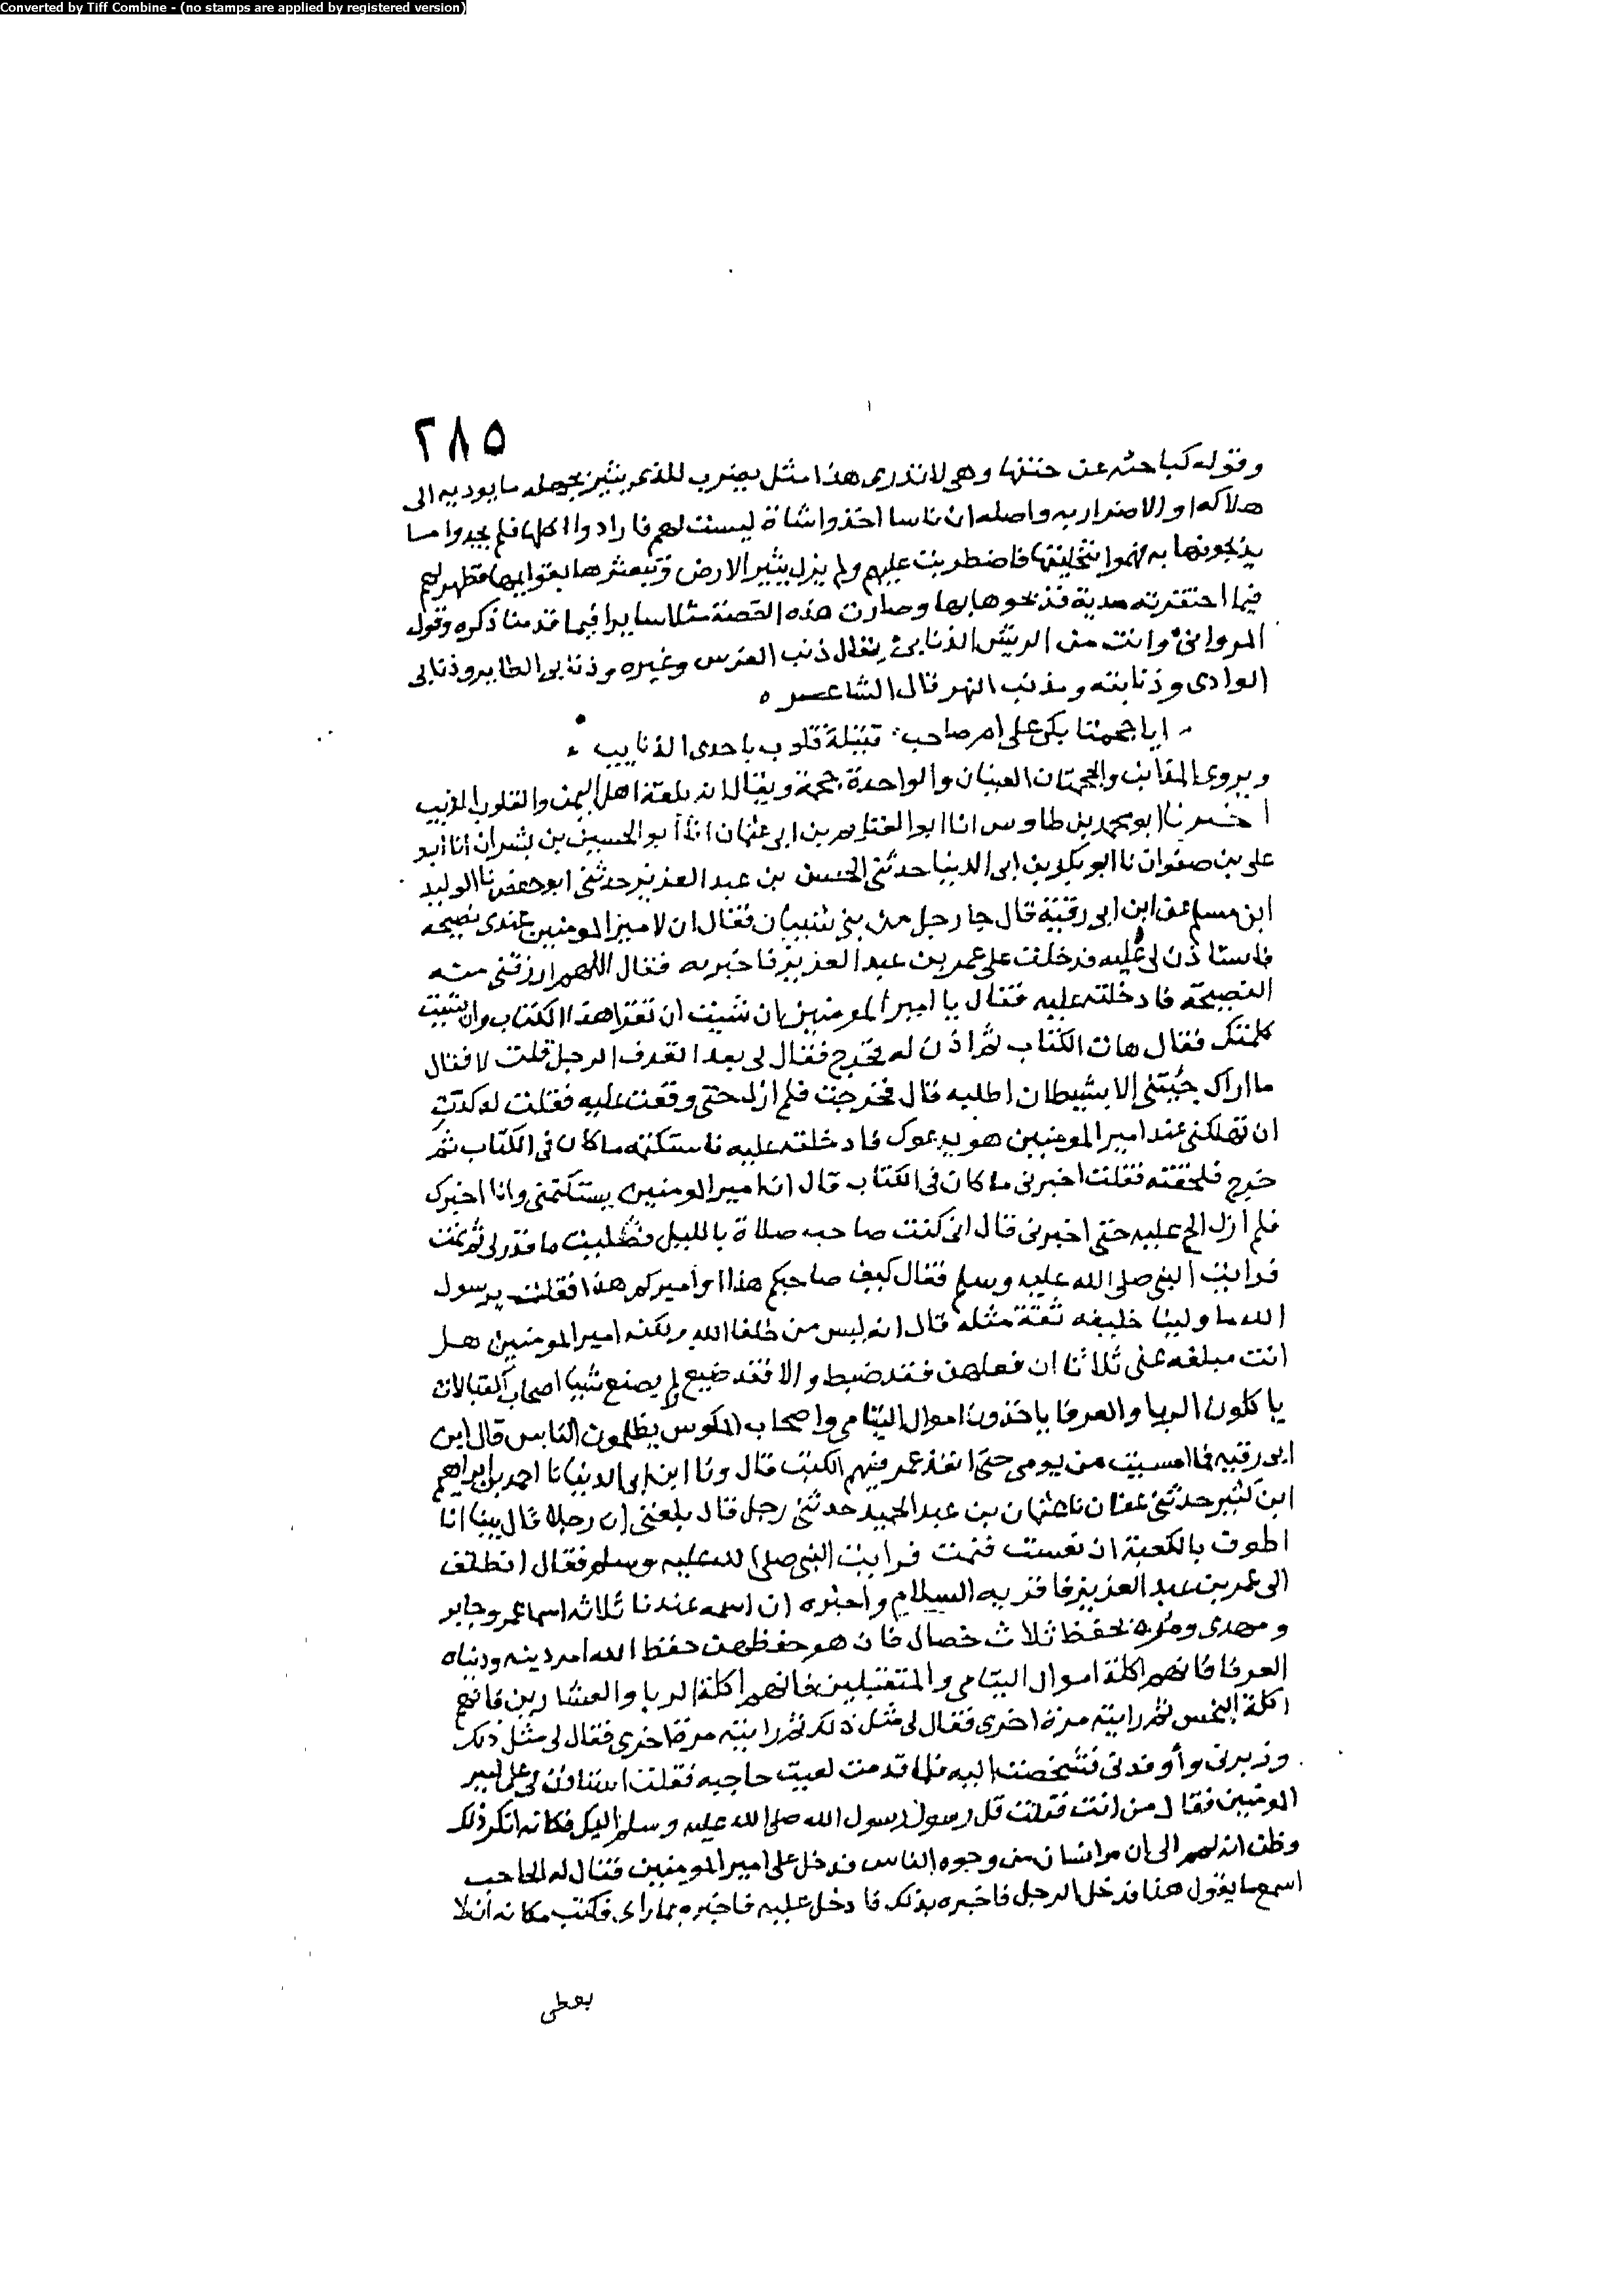 Converted by Tiff Combine - (no stamps are applied by registered version)
٢٨٥
وقوله كباحثه عن حتفها وهي لا تدري هذا مثل يضرب للذي يثير بجهله ما يوديه الى
هلاكه او الاضرار به واصله ان ناسا اخذوا شاة ليست لهم فارادوا اكلها فلم يجدوا ما
يذبحونها به فهموا بتخليتها فاضطربت عليهم ولم يزل يثير الارض وتبعثرها بقوايمها فظهر لهم
فيما احتفرته مدية فذبحوها بها وصارت هذه القصة مثلا سايرا فيما قدمنا ذكره وقول
المرواني وانت من الريش الذنابى يقال ذنب الفرس وغيره وذنابى الطاير وذنابى
الوادي وذنابته ومذنب النهر قال الشاعر
ايا جحمتا بكى على ام صاحب قتيلة قلوب باحدى الذنايب
ويروى المذانب والجحمتان العينان والواحدة جحمة ويقال انه بلغة اهل اليمن والقلوب الذيب
اخبرنا ابو محمد بن طاوس انا ابو الغنايم بن ابي عثمان انا ابو الحسين بن بشران انا ابو
علي بن صفوان نا ابو بكر بن ابي الدنيا حدثني الحسن بن عبد العزيز حدثني ابو حفص نا الوليد
ابن مسلم عن ابن ابي رقية قال جا رجل من بني شيبان فقال ان لامير المومنين عندي نصيحه
فاستاذن لي عليه فدخلت على عمر بن عبد العزيز فاخبرته فقال اللهم ارزقني منه
النصيحة فادخلته عليه فقال يا امير المومنين ان شيت ان تقرا هذا الكتاب وان شيت
كلمتك فقال هات الكتاب ثم اذن له فخرج فقال لي بعد اتعرف الرجل قلت لا فقال
ما اراك جيتني الا بشيطان اطلبه قال فخرجت فلم ازل حتى وقعت عليه فقلت له كدت
ان تهلكني عند امير المومنين هو يدعوك فادخلته عليه فاستكتمه ما كان في الكتاب ثم
خرج فلحقته فقلت اخبرني ما كان في الكتاب قال ان امير المومنين يستكتمني وانا اخبرك
فلم ازل الح عليه حتى اخبرني قال اني كنت صاحب صلاة بالليل فصليت ما قدر لي ثم نمت
فرايت النبي صلى الله عليه وسلم فقال كيف صاحبكم هذا او اميركم هذا فقلت يرسول
الله ما ولينا خليفه ثقة مثله قال انه ليس من خلفا الله ولكنه امير المومنين هل
انت مبلغه عني ثلاثا ان فعلهن فقد ضبط والا فقد ضيع لم يصنع شيا اصحاب القبالات
ياكلون الربا والعرفا ياخذون اموال اليتامى واصحاب المكوس يظلمون الناس قال ابن
ابي رقيه فما امسيت من يومي حتى انفذ عمر فيهم الكتب قال ونا ابن ابي الدنيا نا احمد بن ابراهيم
ابن كثير حدثني عفان نا عثمان بن عبد الحميد حدثني رجل قال بلغني ان رجلا قال بينا انا
اطوف بالكعبة ان نعست فنمت فرايت النبي صلى الله عليه وسلم فقال انطلق
الى عمر بن عبد العزيز فاقريه السلام واخبره ان اسمه عندنا ثلاثه اسما عمر وجابر
ومهدي ومره بحفظ ثلاث خصال فان هو حفظهن حفظ الله امر دينه ودنياه
العرفا فانهم اكلة اموال اليتامى والمتقبلين فانهم اكلة الربا والعشارين فانهم
اكلة البخس ثم رايته مرة اخرى فقال لي مثل ذلك ثم رايته مرة اخرى فقال لي مثل ذلك
وزبرني وأوفدني فشخصت اليه فلما قدمت لقيت حاجبه فقلت استاذن لي على امير
المومنين فقال من انت فقلت قل رسول رسول الله صلى الله عليه وسلم اليك فكانه انكر ذلك
وظن انه لمم الى ان مر انسان من وجوه الناس فدخل على امير المومنين فقال له الحاجب
اسمع ما يقول هذا فدخل الرجل فاخبره بذلك فادخل عليه فاخبره بما راى فكتب مكانه أن لا
يعطى